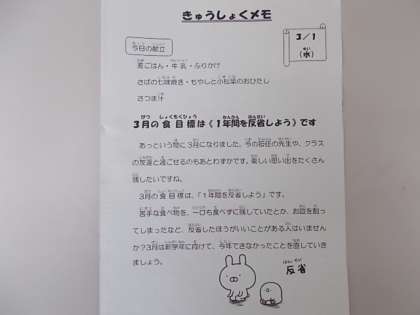 きゅうしょくメモ
3／1
（水）
今日の献立
麦ごはん・牛乳・ふりかけ
さばの七味焼き・もやしと小松菜のおひたし
さつま汁
3月の食目標は《1年間を反省しよう》です
あっという間に3月になりました。今の担任の先生や、クラス
の友達と過ごせるのもあとわずかです。楽しい思い出をたくさん
残したいですね。
3月の食目標は、「1年間を反省しよう」です。
苦手な食べ物を、一口も食べずに残していたとか、お皿を割っ
てしまったなど、反省したほうがいいことがある人はいません
か？3月は新学年に向けて、今年できなかったことを直していき
ましょう。
反省